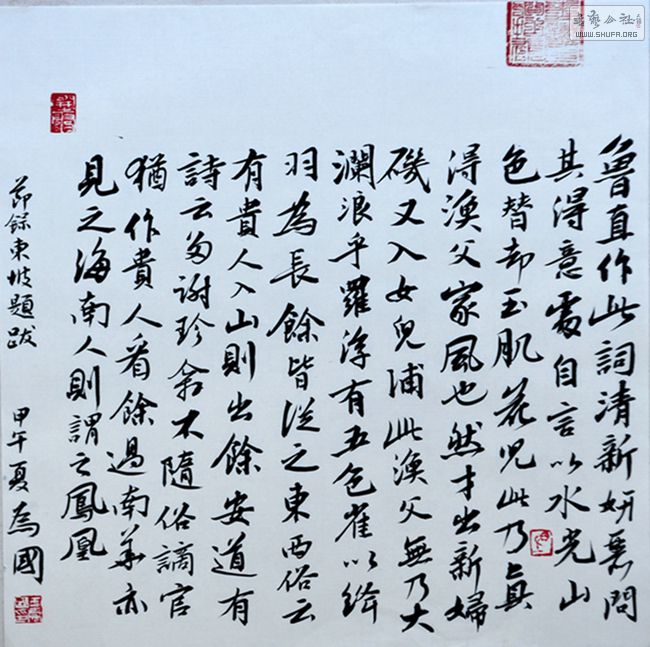 魯直作此詞清新妍麗問
其得意處自言以水光山
色替却玉肌花皃此乃真
得漁父家風也然才出新婦
磯又入女兒浦此漁父無乃大
瀾浪乎羅浮有五色雀以絳
羽為長餘皆從之東西俗云
有貴人入山則出餘安道有
詩云多謝珍禽不隨俗謫官
猶作貴人看餘過南華亦
見之海南人則謂之鳳凰
節錄東坡題跋 甲午夏為國
書藝公社
WWW.SHUFA.ORG